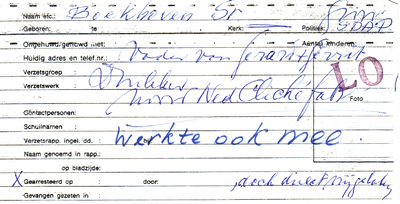 Naam enz.: Boekhoven Sr
Geboren: te Kerk: Politiek: S.D.A.P
Ongehuwd/gehuwd met: Aantal kinderen:
Huidig adres en telef.nr.: Vader van
Verzetsgroep
Verzetswerk Drukker
voor Ned Cliché fab
LO
Foto
Contactpersonen:
Schuilnamen:
Verzetsrapp. ingel. dd.: Werkte ook mee.
Naam genoemd in rapp.:
op bladzijde:
X Gearresteerd op door: , doch direct vrijgelaten
Gevangen gezeten in :